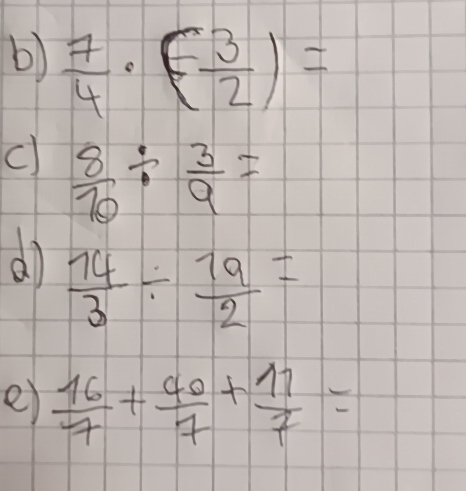 b) 7/4 · (-3/2) =
c) 8/10 ÷ 3/9 =
d) 14/3 ÷ 19/2 =
e) 16/7 + 40/7 + 11/7 =